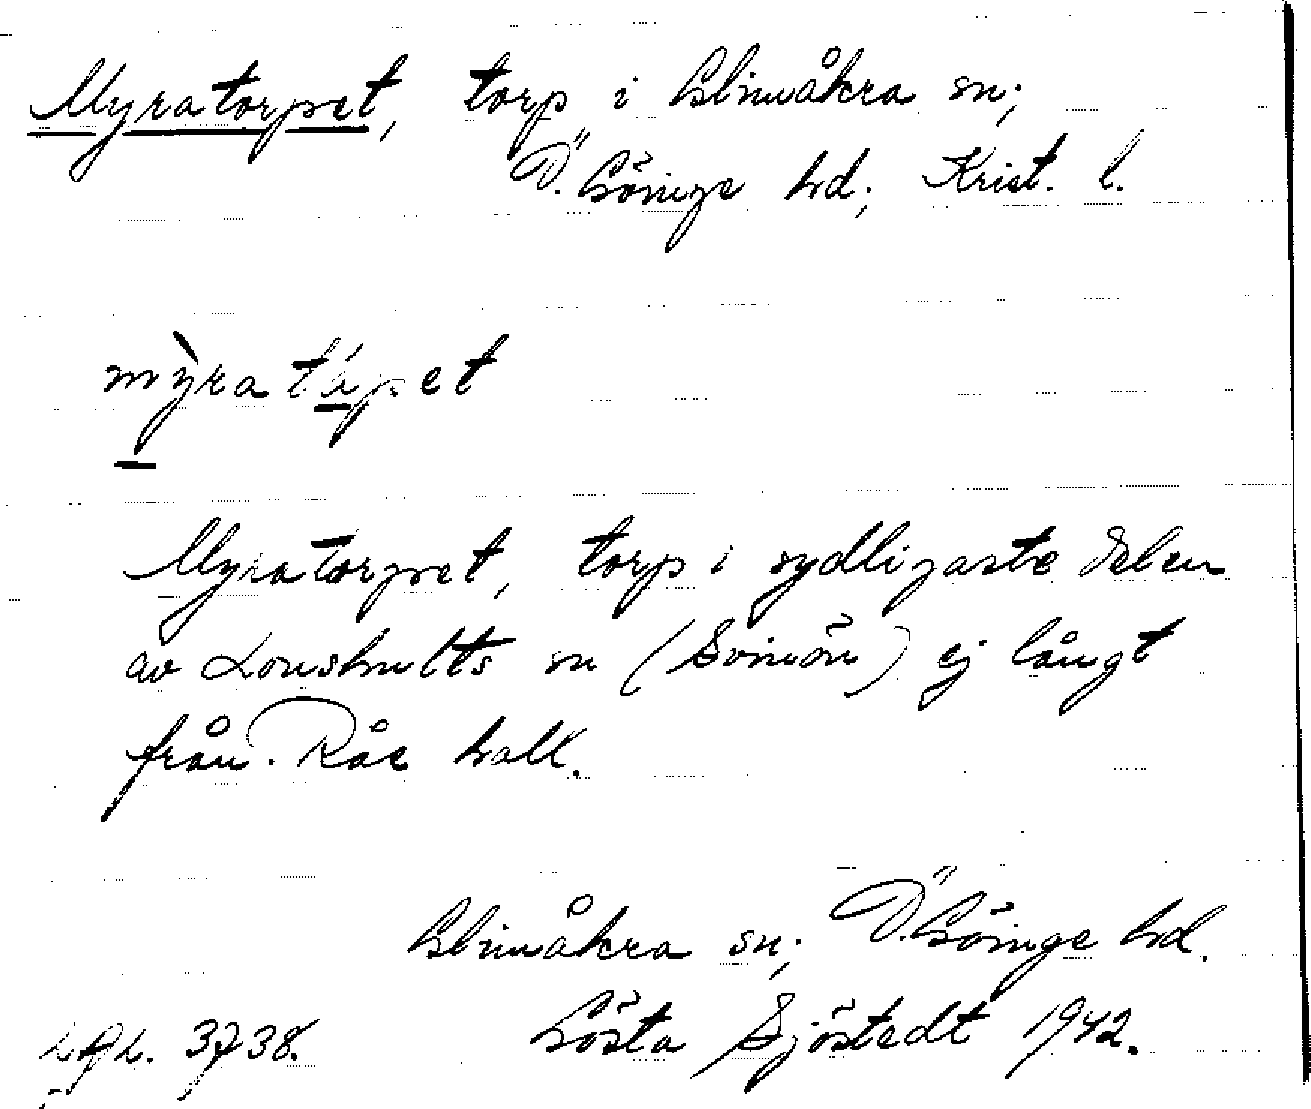 Myratorpet, torp i Glimåkra sn;
Ö. Göinge hd; Krist. l.
mỳra tápet
Myratorpet, torp i sydligaste delen
av Lönshults sn (Svinön) ej långt
från Råe hall.
Glimåkra sn; Ö. Göinge hd.
Gösta Sjöstedt 1942.
3738.